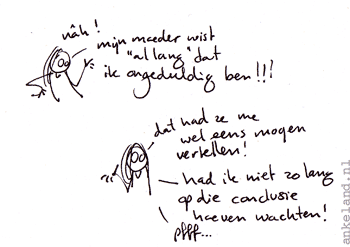 nâh!
mijn moeder wist
"al lang" dat
ik ongeduldig ben!!!
dat had ze me
wel eens mogen
vertellen!
had ik niet zo lang
op die conclusie
hoeven wachten!
pfff...
ankeland.nl